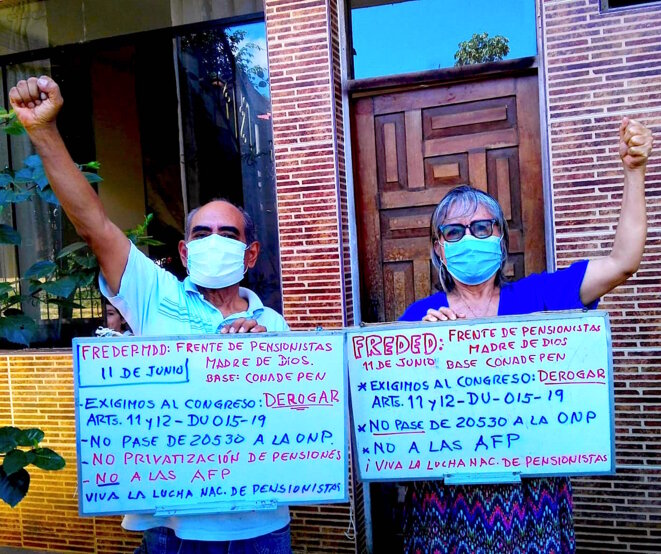 FREDEPMDD: FRENTE DE PENSIONISTAS
MADRE DE DIOS.
11 DE JUNIO
BASE: CONADEPEN
-EXIGIMOS AL CONGRESO: DEROGAR
ARTS. 11 y 12-DU-015-19
-NO PASE DE 20530 A LA ONP.
-NO PRIVATIZACIÓN DE PENSIONES
-NO A LAS AFP
VIVA LA LUCHA NAC. DE PENSIONISTAS
FREDED: FRENTE DE PENSIONISTAS
MADRE DE DIOS
11 DE JUNIO BASE CONADEPEN
*EXIGIMOS AL CONGRESO: DEROGAR
ARTS. 11 y 12-DU-015-19
*NO PASE DE 20530 A LA ONP
*NO A LAS AFP
¡VIVA LA LUCHA NAC. DE PENSIONISTAS